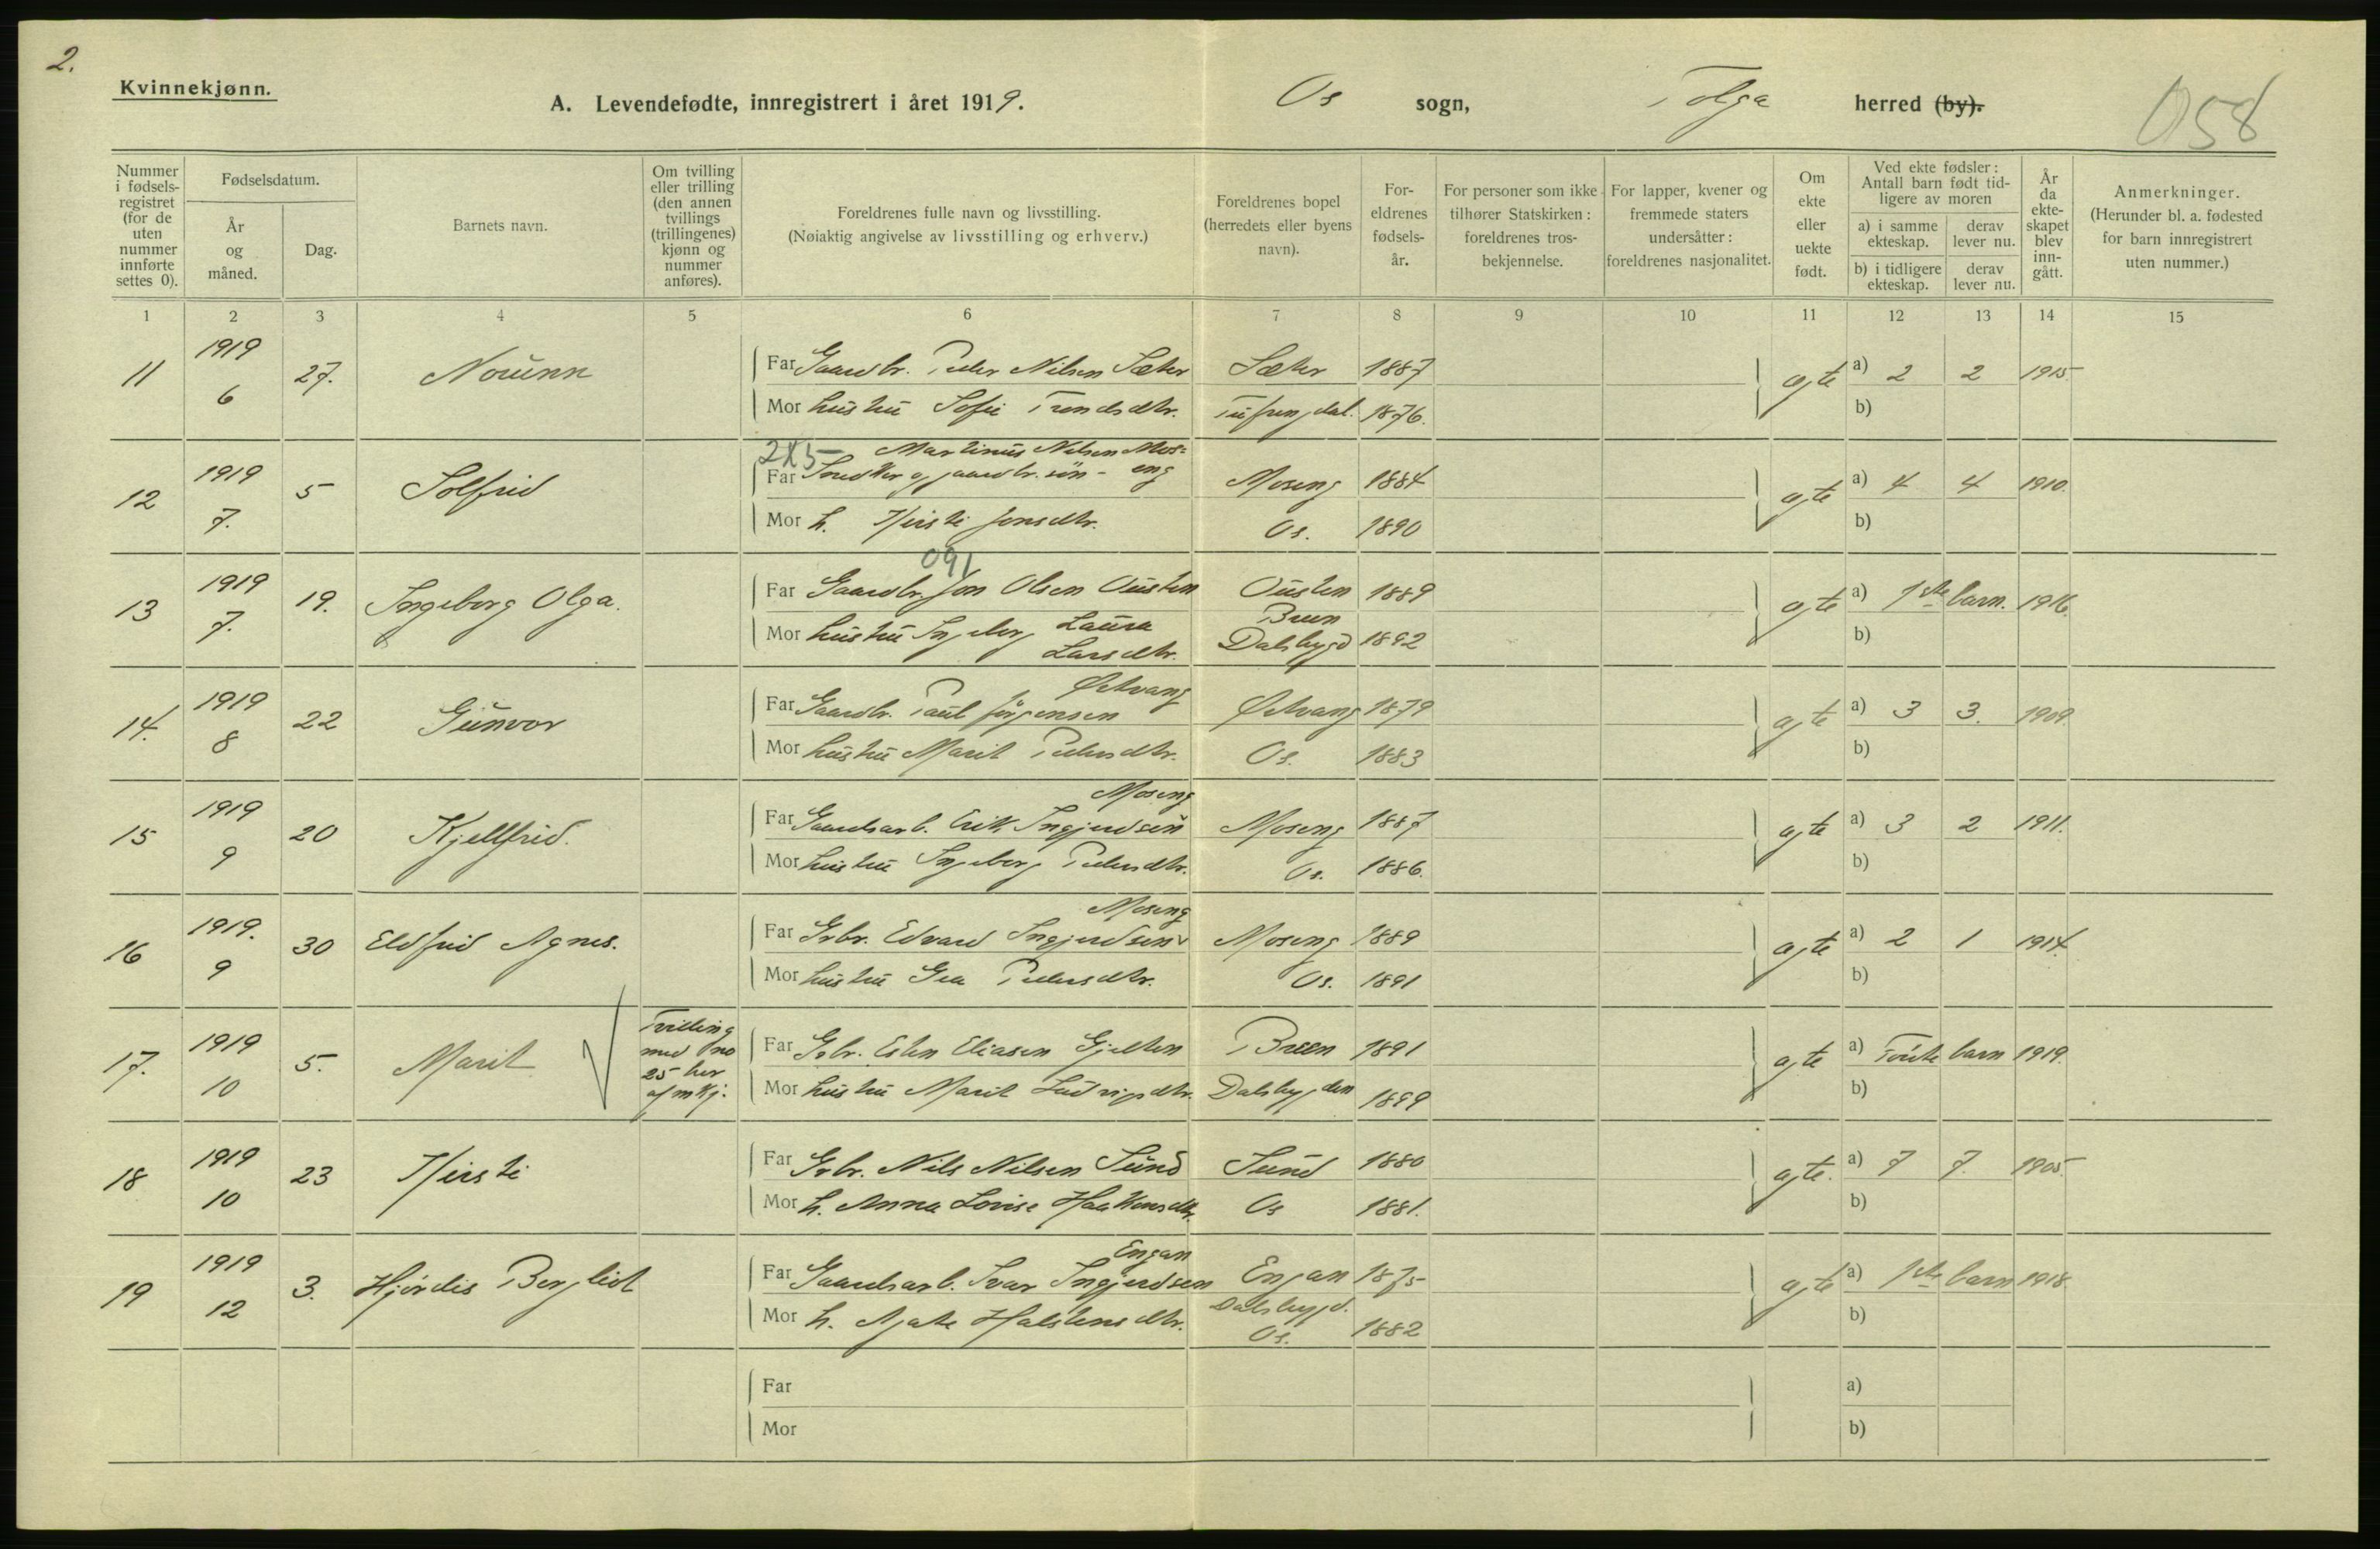 2.
Kvinnekjønn.
A. Levendefødte, innregistrert i året 1919.
Os sogn, Tolga herred (by).
058
Nummer i fødsels-registret (for de uten nummer innførte settes 0).
Fødselsdatum.
År og måned.
Dag.
Barnets navn.
Om tvilling eller trilling (den annen tvillings (trillingenes) kjønn og nummer anføres).
Foreldrenes fulle navn og livsstilling.
(Nøiaktig angivelse av livsstilling og erhverv.)
Foreldrenes bopel (herredets eller byens navn).
For-eldrenes fødsels-år.
For personer som ikke tilhører Statskirken: foreldrenes tros-bekjennelse.
For lapper, kvener og fremmede staters undersåtter: foreldrenes nasjonalitet.
Om ekte eller uekte født.
Ved ekte fødsler: Antall barn født tid-ligere av moren
a) i samme ekteskap.
derav lever nu.
b) i tidligere ekteskap.
derav lever nu.
År da ekte-skapet blev inn-gått.
Anmerkninger.
(Herunder bl. a. fødested for barn innregistrert uten nummer.)
1 2 3 4 5 6 7 8 9 10 11 12 13 14 15
11 1919 6 27. Norunn
Far Gaardbr. Peder Nilsen Sæter Sæter 1887 a) 2 2 1915
Mor hustru Sofie Trondsdtr. Tufsingdal. 1876. b)
ægte
2X5 Martinus Nilsen Mos-
12 1919 7. 5 Solfrid
Far Snedker og gaardbr.søn - eng Moseng 1884 a) 4 4 1910.
Mor h. Kirsti Jonsdtr. Os. 1890 b)
ægte
091
13 1919 7. 19. Ingeborg Olga.
Far Gaardbr. Jon Olsen Ousten Ousten 1889 a) 1ste barn. 1916.
Mor hustru Ingeborg Laura Larsdtr. Breen Dalsbygd 1892 b)
ægte
14. 1919 8 22 Gunvor
Far Gaardbr. Paul Jørgensen Østvang Østvang 1879 a) 3 3. 1909.
Mor hustru Marit Pedersdtr. Os. 1883 b)
ægte
15 1919 9 20 Kjellfrid.
Far Gaardsarb. Erik Ingjerdsen Moseng Moseng 1887 a) 3 2 1911.
Mor hustru Ingeborg Pedersdtr. Os. 1886. b)
ægte
16 1919. 9 30 Eldfrid Agnes.
Far Grbr. Edvard Ingjerdsen Moseng Moseng 1889 a) 2 1 1914.
Mor hustru Gea Pedersdtr. Os. 1891 b)
ægte
17. 1919 10 5. Marit
Tvilling med no 25 her af mkj.
Far Grbr. Esten Eliasen Gjelten Breen 1891 a) Første barn 1919.
Mor hustru Marit Ludvigsdtr. Dalsbygden 1899 b)
ægte
18 1919 10 23 Kirsti
Far Grbr. Nils Nilsen Sund Sund 1880 a) 7 7. 1905.
Mor h. Anna Lovise Haakensdtr. Os 1881. b)
ægte.
19 1919 12 3. Hjørdis Bergliot
Far Gaardsarb. Ivar Ingjerdsen Engan Engan 1875 a) 1ste barn 1918.
Mor h. Agate Halstensdtr. Dalsbygd. Os. 1882 b)
ægte
Far a)
Mor b)